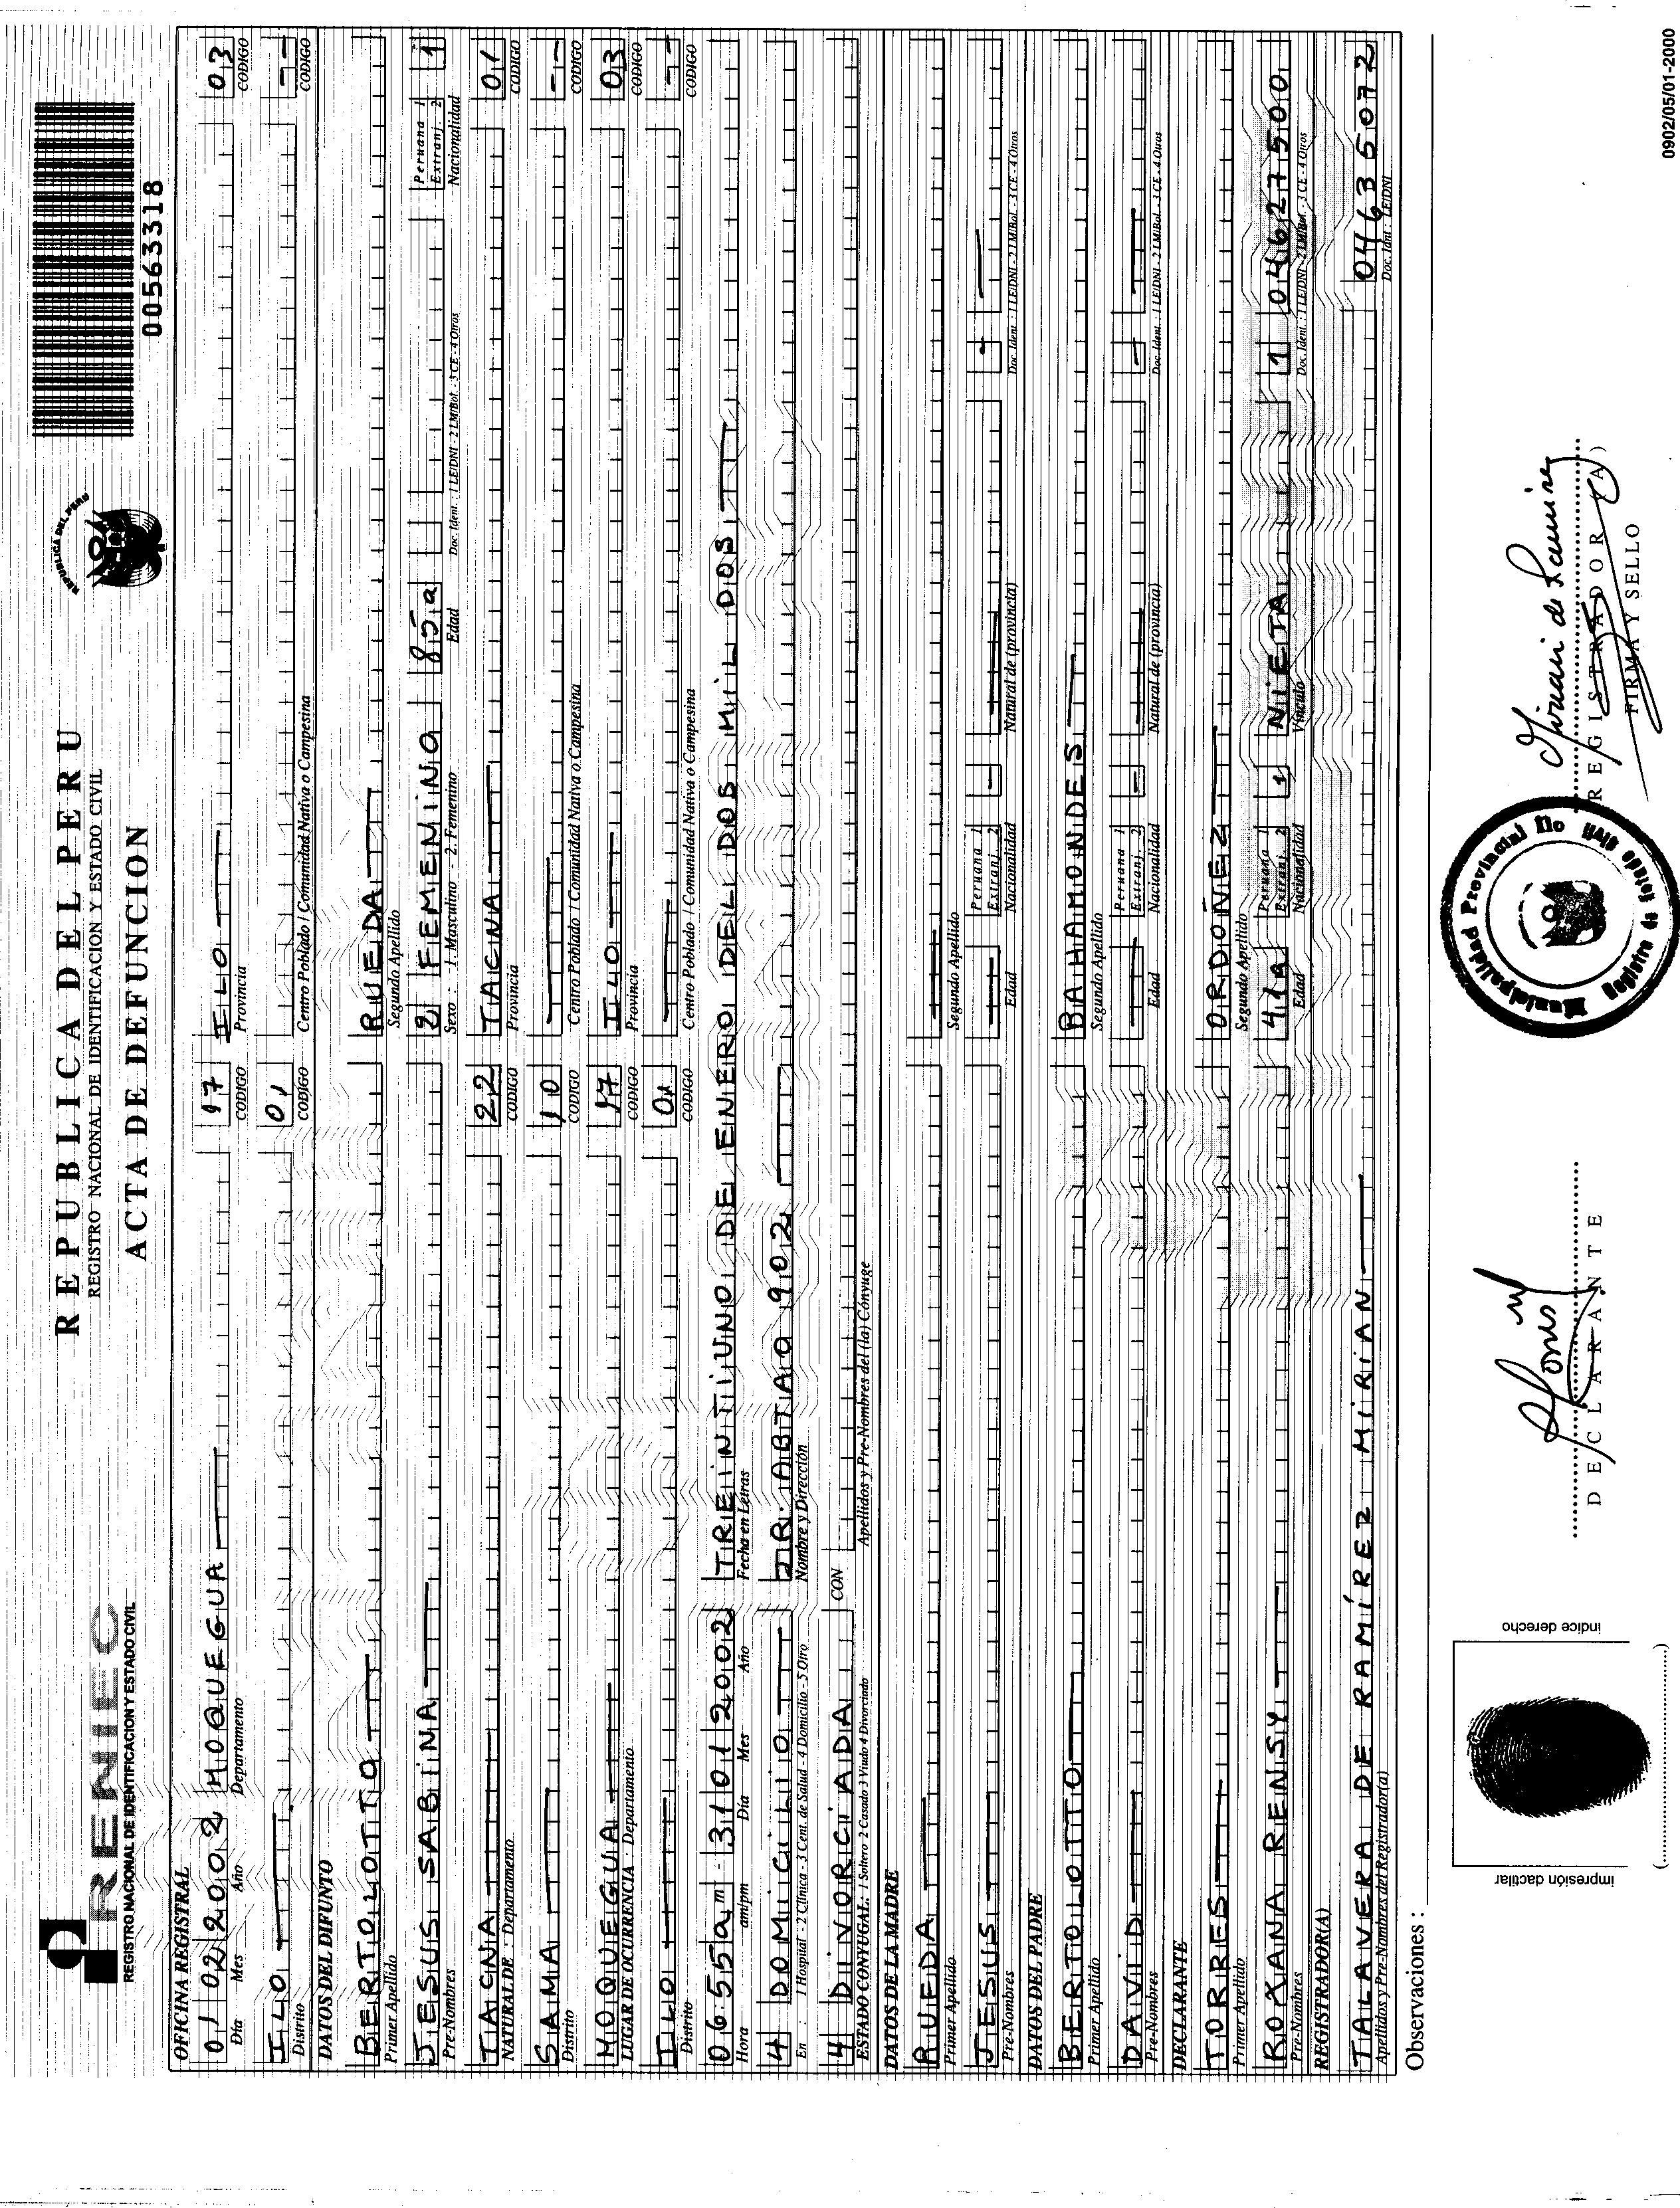 RENIEC
REGISTRO NACIONAL DE IDENTIFICACION Y ESTADO CIVIL
REPUBLICA DEL PERU
REGISTRO NACIONAL DE IDENTIFICACION Y ESTADO CIVIL
ACTA DE DEFUNCION
REPUBLICA DEL PERU
00563318
OFICINA REGISTRAL
01 02 2002 MOQUEGUA 17 ILO 03
Día Mes Año Departamento CODIGO Provincia CODIGO
ILO 01 --
Distrito CODIGO Centro Poblado / Comunidad Nativa o Campesina CODIGO
DATOS DEL DIFUNTO
BERTOLOTTO RUEDA
Primer Apellido Segundo Apellido
JESUS SABINA 2 FEMENINO 85a Peruana 1 Extranj. 2 1
Pre-Nombres Sexo : 1. Masculino - 2. Femenino Edad Doc. Ident. : 1 LE/DNI - 2 LM/Bol. - 3 CE - 4 Otros Nacionalidad
TACNA 22 TACNA 01
NATURAL DE : Departamento CODIGO Provincia CODIGO
SAMA 10 --
Distrito CODIGO Centro Poblado / Comunidad Nativa o Campesina CODIGO
MOQUEGUA 17 ILO 03
LUGAR DE OCURRENCIA : Departamento CODIGO Provincia CODIGO
ILO 01 --
Distrito CODIGO Centro Poblado / Comunidad Nativa o Campesina CODIGO
06:55am 31 01 2002 TREINTIUNO DE ENERO DEL DOS MIL DOS
Hora am/pm Día Mes Año Fecha en Letras
4 DOMICILIO JR. ABTAO 902
En : 1 Hospital - 2 Clínica - 3 Cent. de Salud - 4 Domicilio - 5 Otro Nombre y Dirección
4 DIVORCIADA CON
ESTADO CONYUGAL: 1 Soltero 2 Casado 3 Viudo 4 Divorciado Apellidos y Pre-Nombres del (la) Cónyuge
DATOS DE LA MADRE
RUEDA
Primer Apellido Segundo Apellido
JESUS Peruana 1 Extranj. 2 - -
Pre-Nombres Edad Nacionalidad Natural de (provincia) Doc. Ident. : 1 LE/DNI - 2 LM/Bol. - 3 CE - 4 Otros
DATOS DEL PADRE
BERTOLOTTO BAHAMONDES
Primer Apellido Segundo Apellido
DAVID Peruana 1 Extranj. 2 - -
Pre-Nombres Edad Nacionalidad Natural de (provincia) Doc. Ident. : 1 LE/DNI - 2 LM/Bol. - 3 CE - 4 Otros
DECLARANTE
TORRES ORDOÑEZ
Primer Apellido Segundo Apellido
ROXANA RENSY 41a Peruana 1 Extranj. 2 1 NIETA 1 04627500
Pre-Nombres Edad Nacionalidad Vínculo Doc. Ident. : 1 LE/DNI - 2 LM/Bol. - 3 CE - 4 Otros
REGISTRADOR(A)
TALAVERA DE RAMÍREZ MIRIAN 04635072
Apellidos y Pre-Nombres del Registrador(a) Doc. Idnt : LE/DNI
Observaciones :
impresión dactilar
índice derecho
(....................)
DECLARANTE
Municipalidad Provincial Ilo
Registro de Estado Civil
REGISTRADOR (A)
FIRMA Y SELLO
0902/05/01-2000